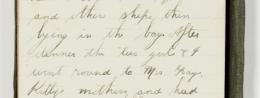 and other ships, then
lying in the bay. After
dinner the two girls & I
went round to Mrs. Gray,
Kitty's mother, and had